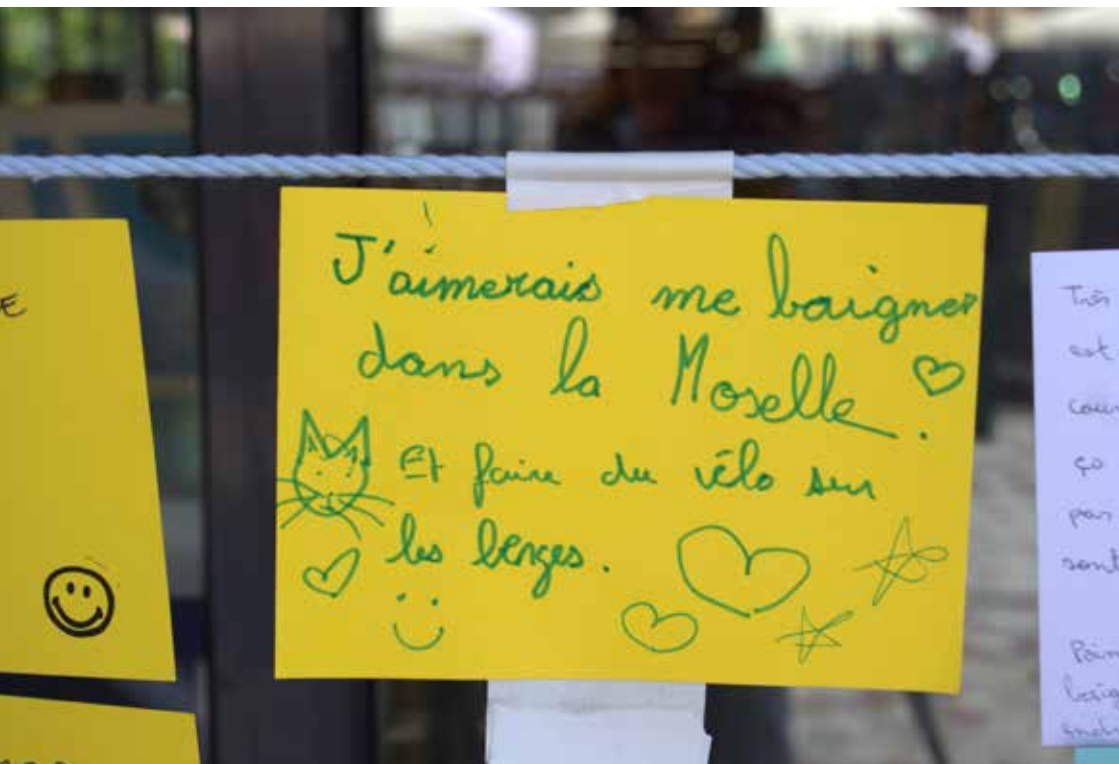 J'aimerais me baigner
dans la Moselle.
Et faire du vélo sur
les berges.
E
est
ço
par
sont